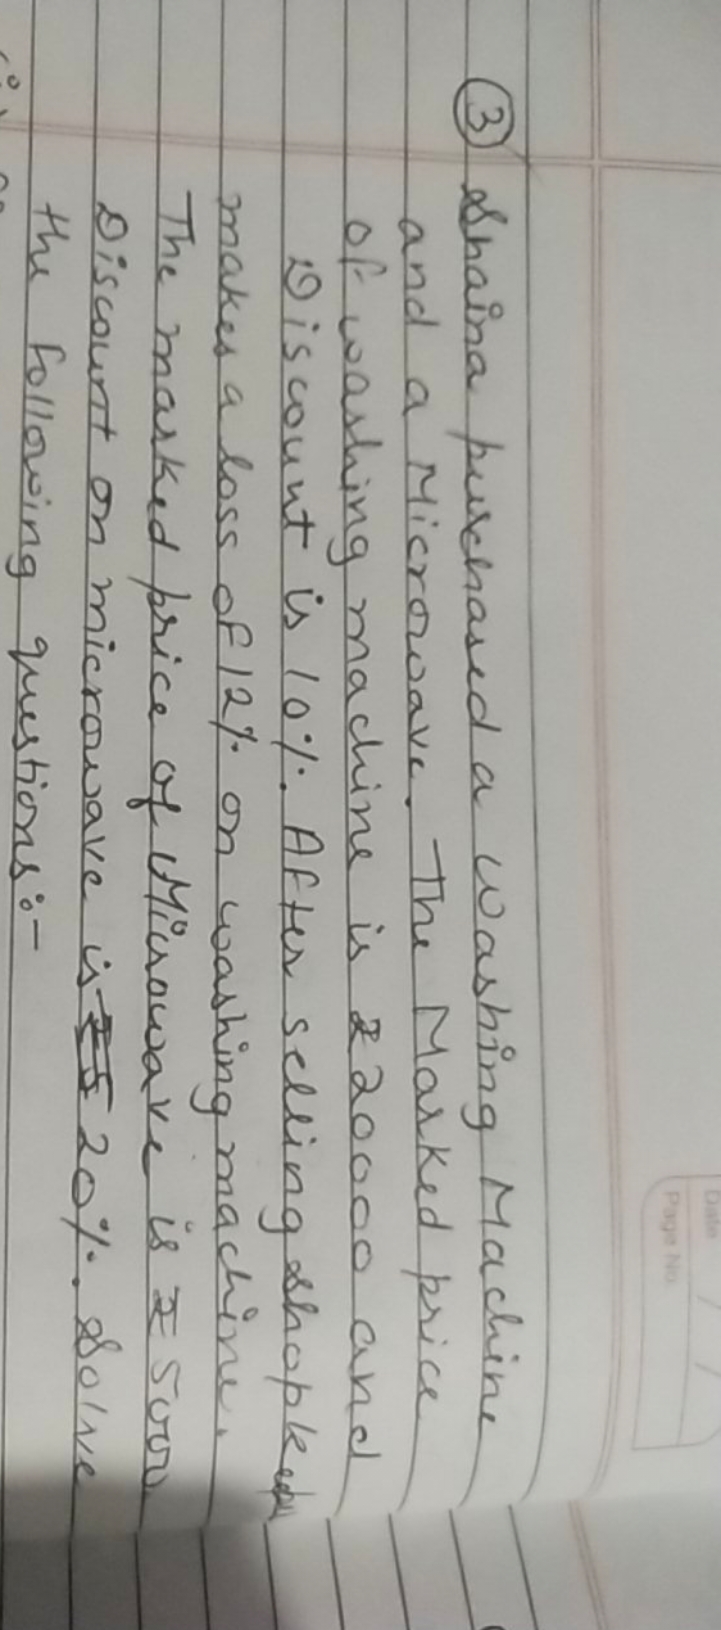 Date / /
Page No.
③ Shaina purchased a Washing Machine
and a Microwave. The Marked price
of washing machine is ₹20000 and
Discount is 10%. After selling shopkeeper
makes a loss of 12% on washing machine.
The marked price of Microwave is ₹5000.
Discount on microwave is 20%. Solve
the following questions:-